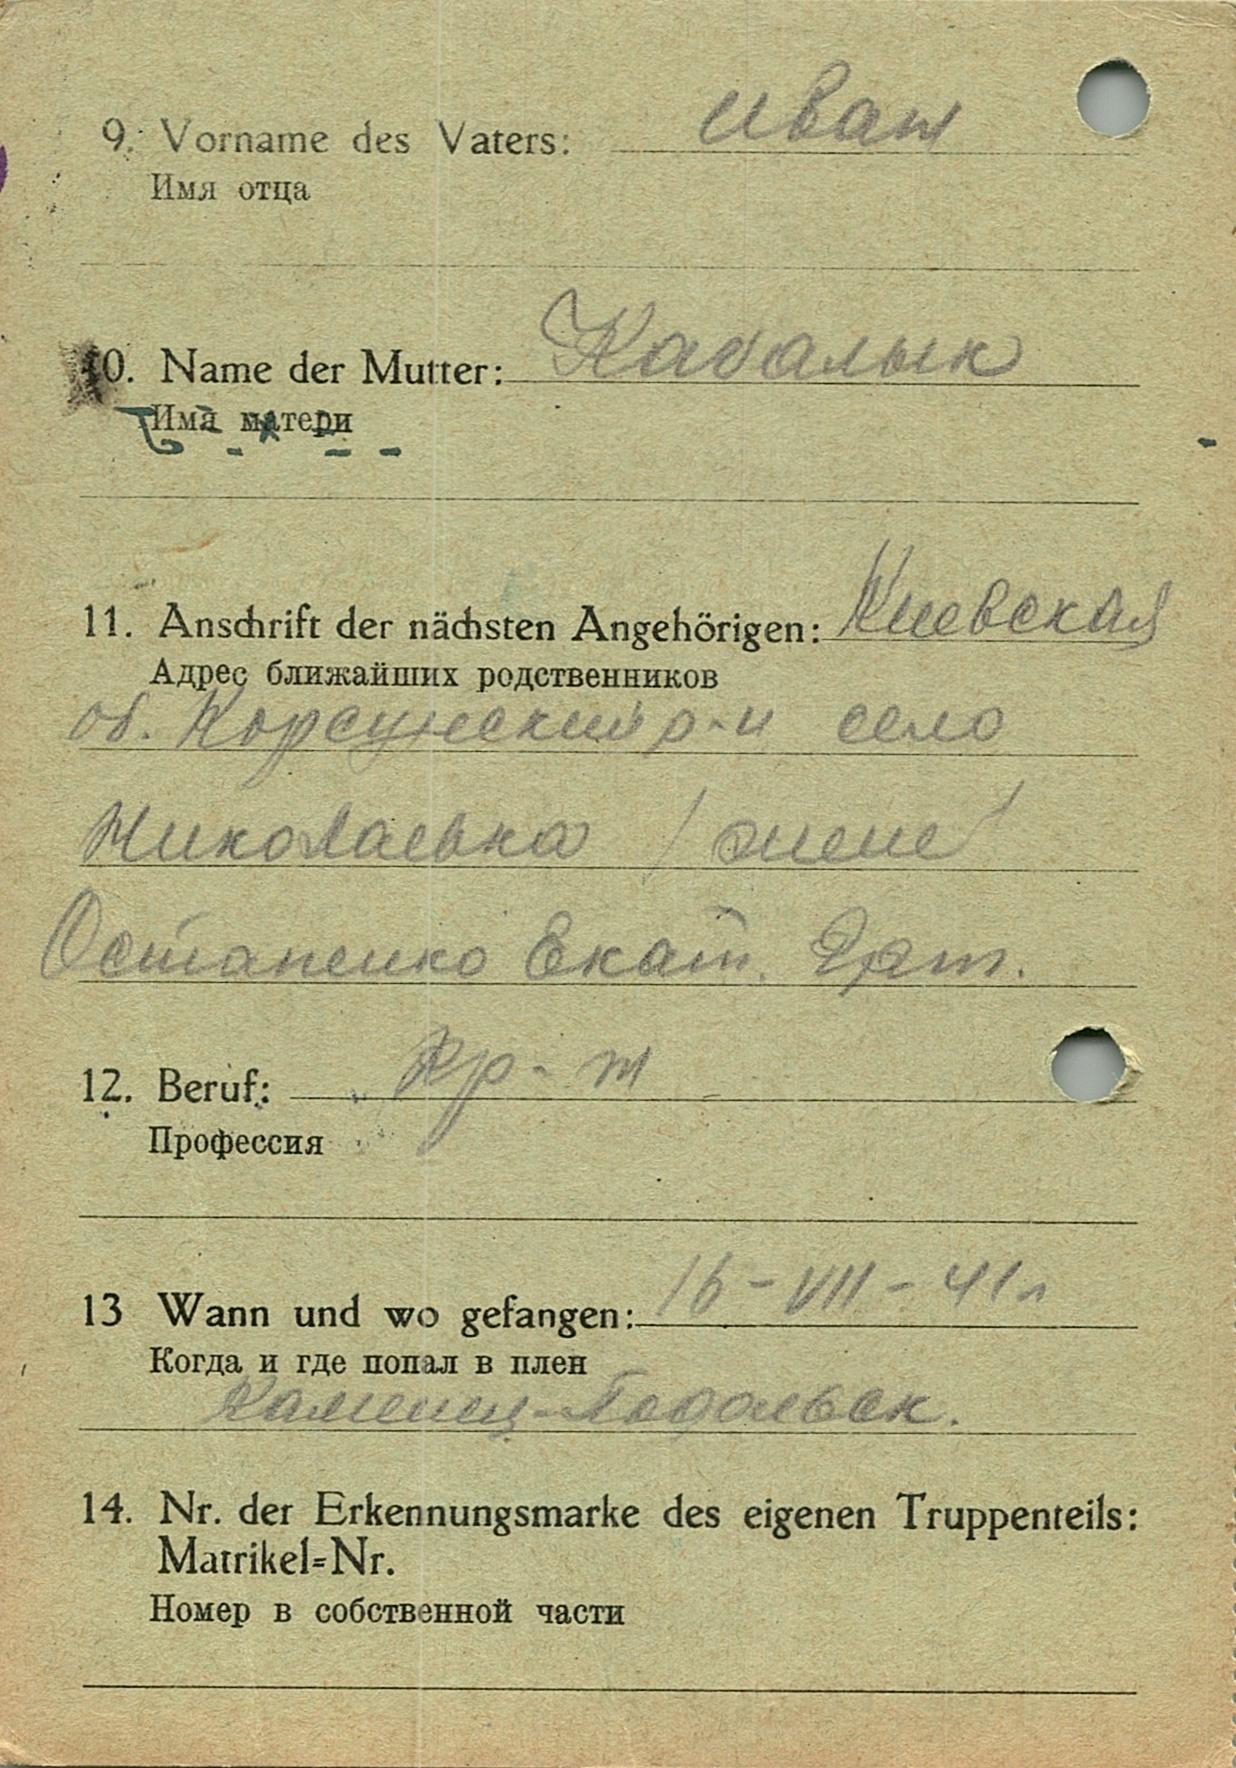 9. Vorname des Vaters: Иван
Имя отца
10. Name der Mutter: Кабалык
Имя матери
11. Anschrift der nächsten Angehörigen: Киевская
Адрес ближайших родственников
об. Корсунский р-н село
Николаевка / жене
Остапенко Екат.
12. Beruf: кр-н
Профессия
13 Wann und wo gefangen: 16-VII-41г
Когда и где попал в плен
Каменец-Подольск.
14. Nr. der Erkennungsmarke des eigenen Truppenteils:
Matrikel=Nr.
Номер в собственной части